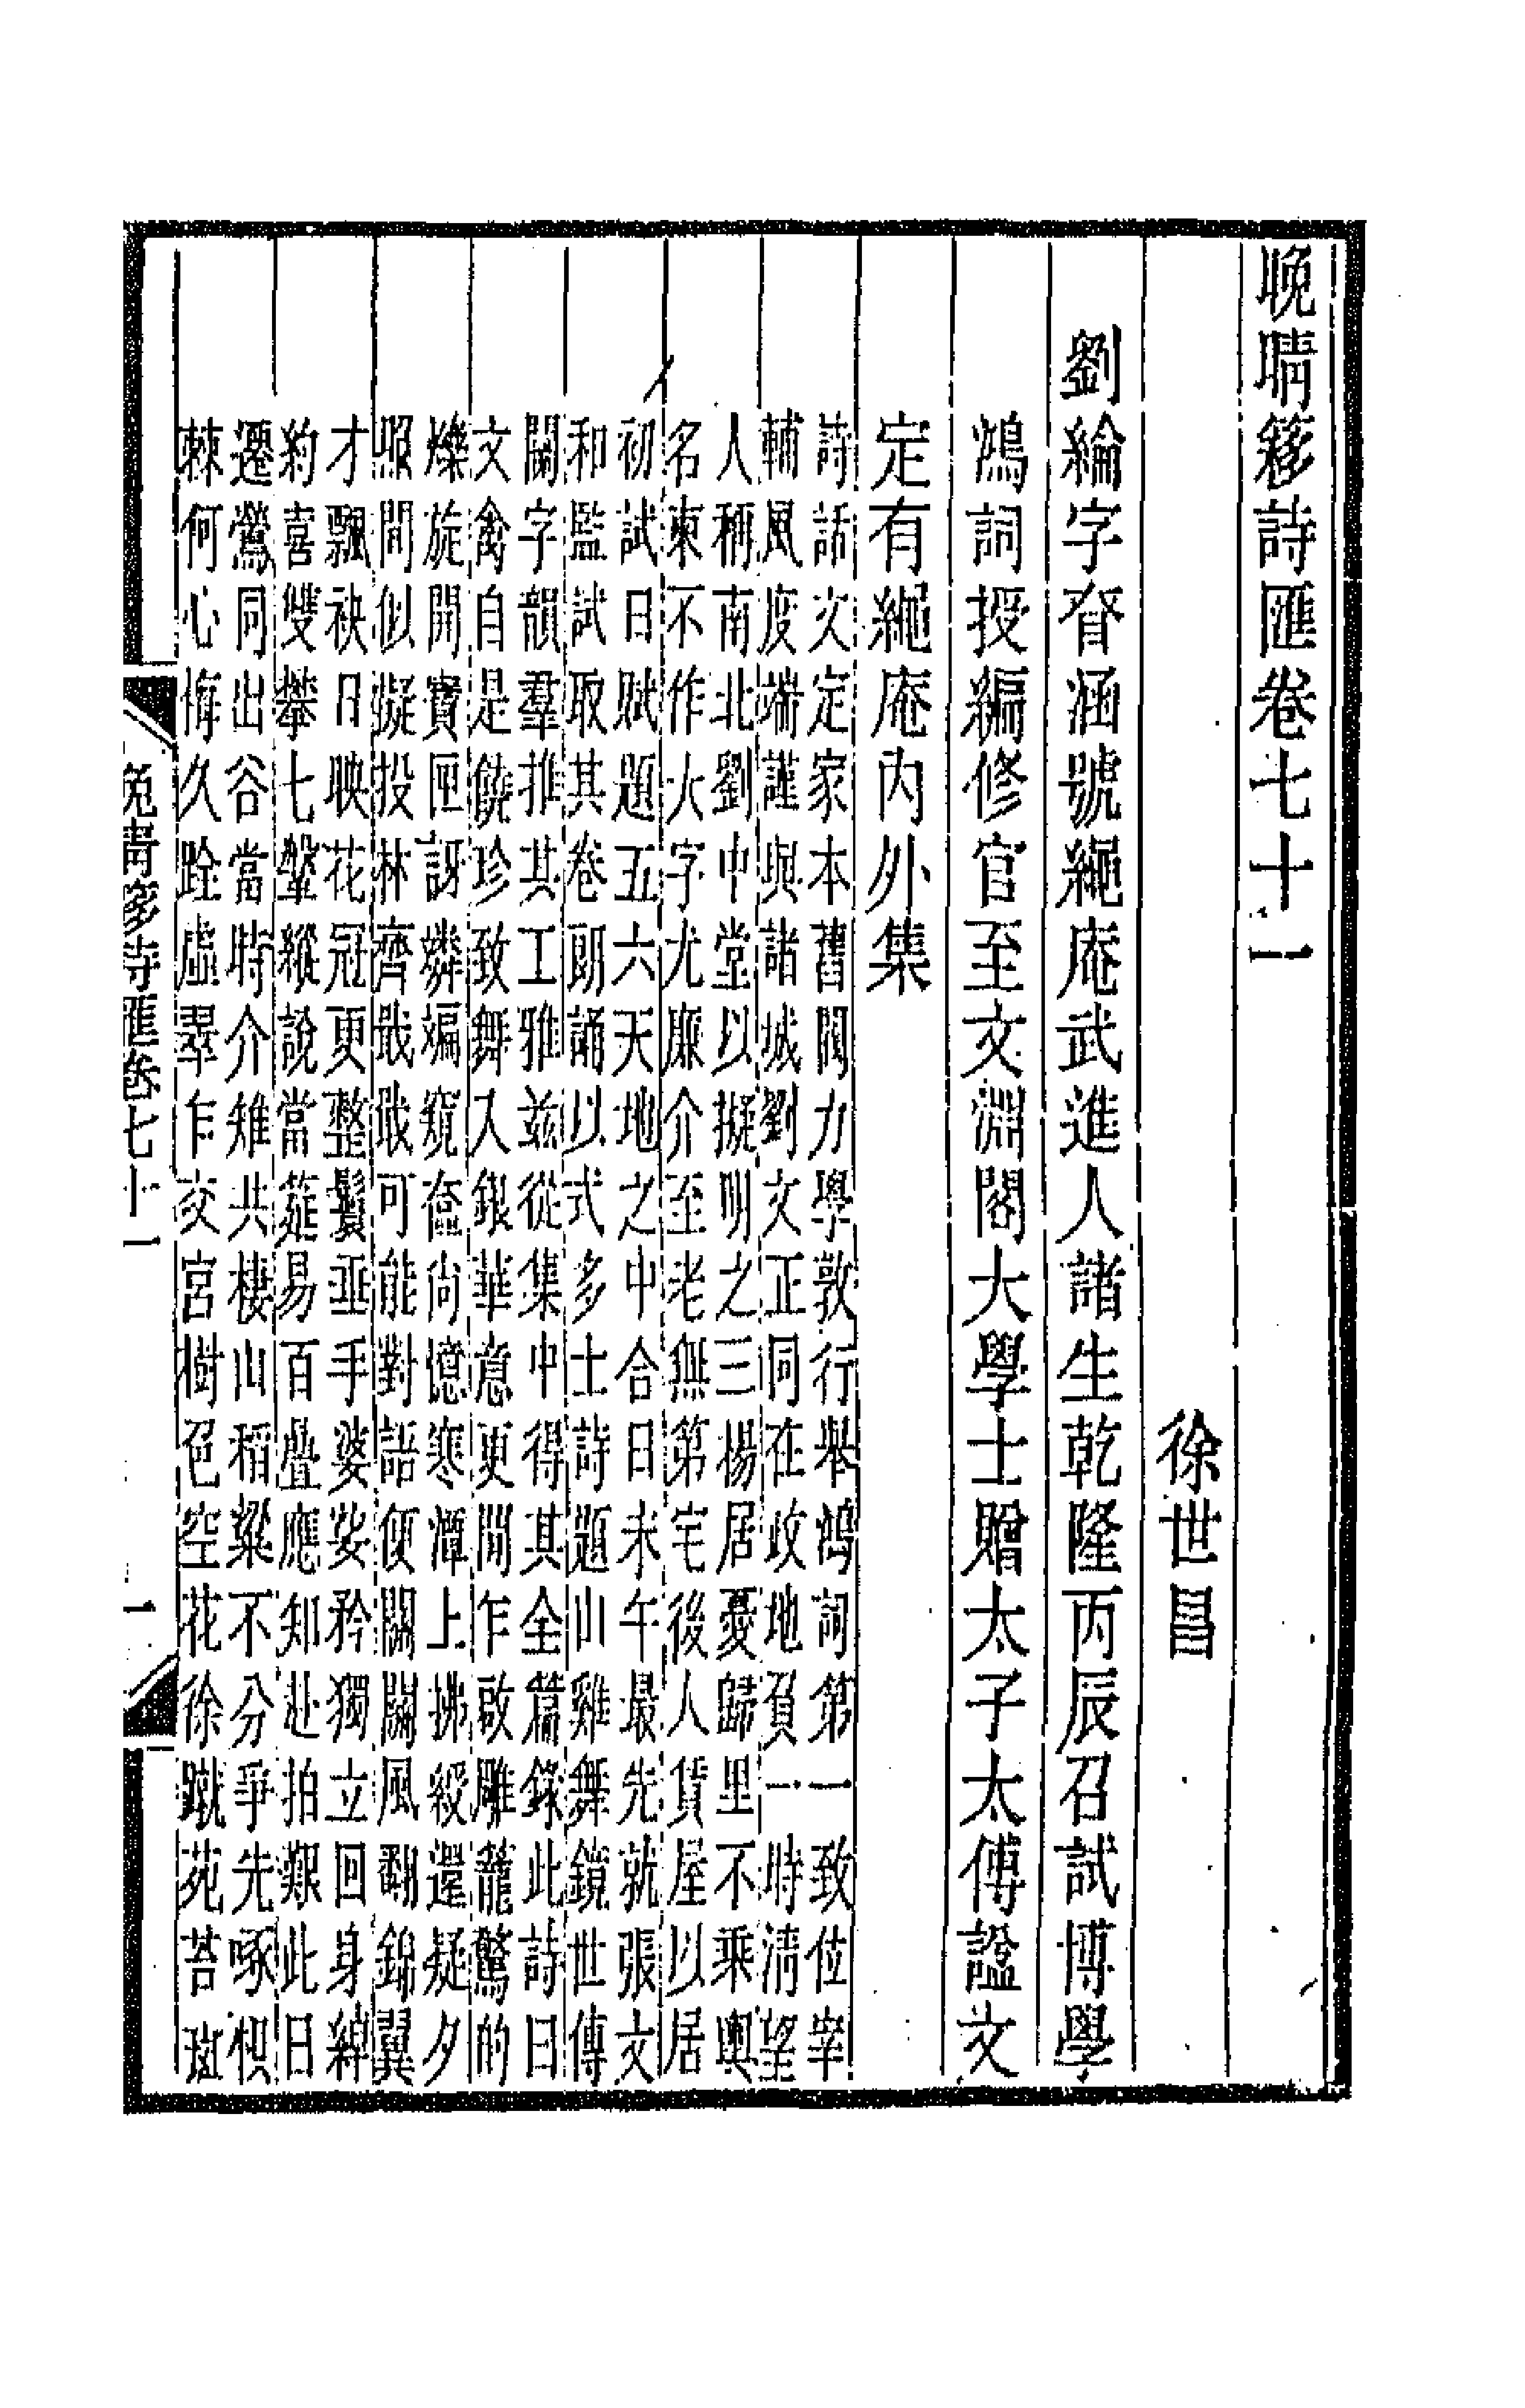 晚晴簃詩匯卷七十一
徐世昌
劉綸字眘涵號繩庵武進人諸生乾隆丙辰召試博學
鴻詞授編修官至文淵閣大學士贈太子太傅諡文
定有繩庵內外集
詩話文定家本舊閥力學敦行舉鴻詞第一致位宰
輔風度端謹與諸城劉文正同在政地負一時清望
人稱南北劉中堂以擬明之三楊居憂歸里不乘輿
名柬不作大字尤廉介至老無第宅後人貨屋以居
初試日賦題五六天地之中合日未午最先就張文
和監試取其卷朗誦以式多士詩題山雞舞鏡世傳
關字韻羣推其工雅茲從集中得其全篇錄此詩曰
文禽自是饒珍致舞入銀華意更閒乍啟雕籠驚的
爍旋開寶匣訝斒窺奩尚憶寒潭上拂綬還疑夕
照間似擬投林齊戢戢可能對語便關關風翻錦翼
才飄袂日映花冠更整鬟垂手婆娑矜獨立回身綽
約喜雙攀七盤縱說當筵易百疊應知赴拍艱此日
遷鶯同出谷當時介雉共棲山稻粱不分爭先啄枳
棘何心悔久跧虛翠乍交宮樹色空花徐蹴苑苔斑
晚晴簃詩匯卷七十一
一